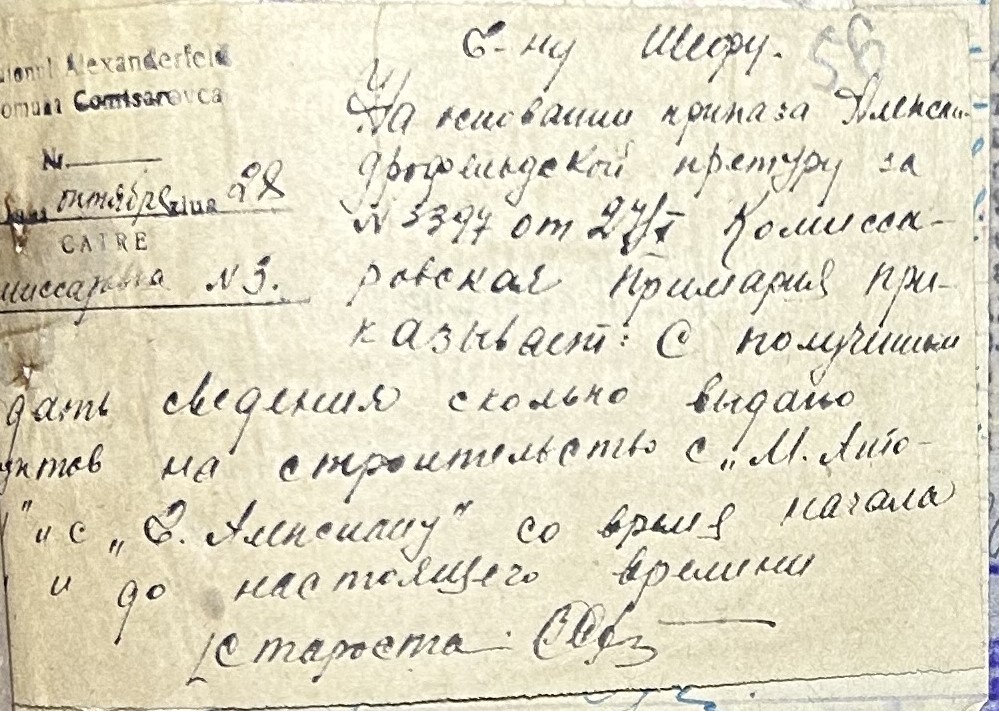 Alexanderfeld
Comuna Comisarovca
Nr.
октября ziua 28
CATRE
миссаровка N 3.
56
Г-ну Шефу.
На основании приказа Алекса-
дрофельдской претуру за
N 3397 от 27/X Комисса-
ровская Примария при-
казывает: С получением
дать сведения сколько выдано
унтов на строительство с „М. Анто-
" и с „Г. Алексиану" со время начала
и до настоящего времени
Староста